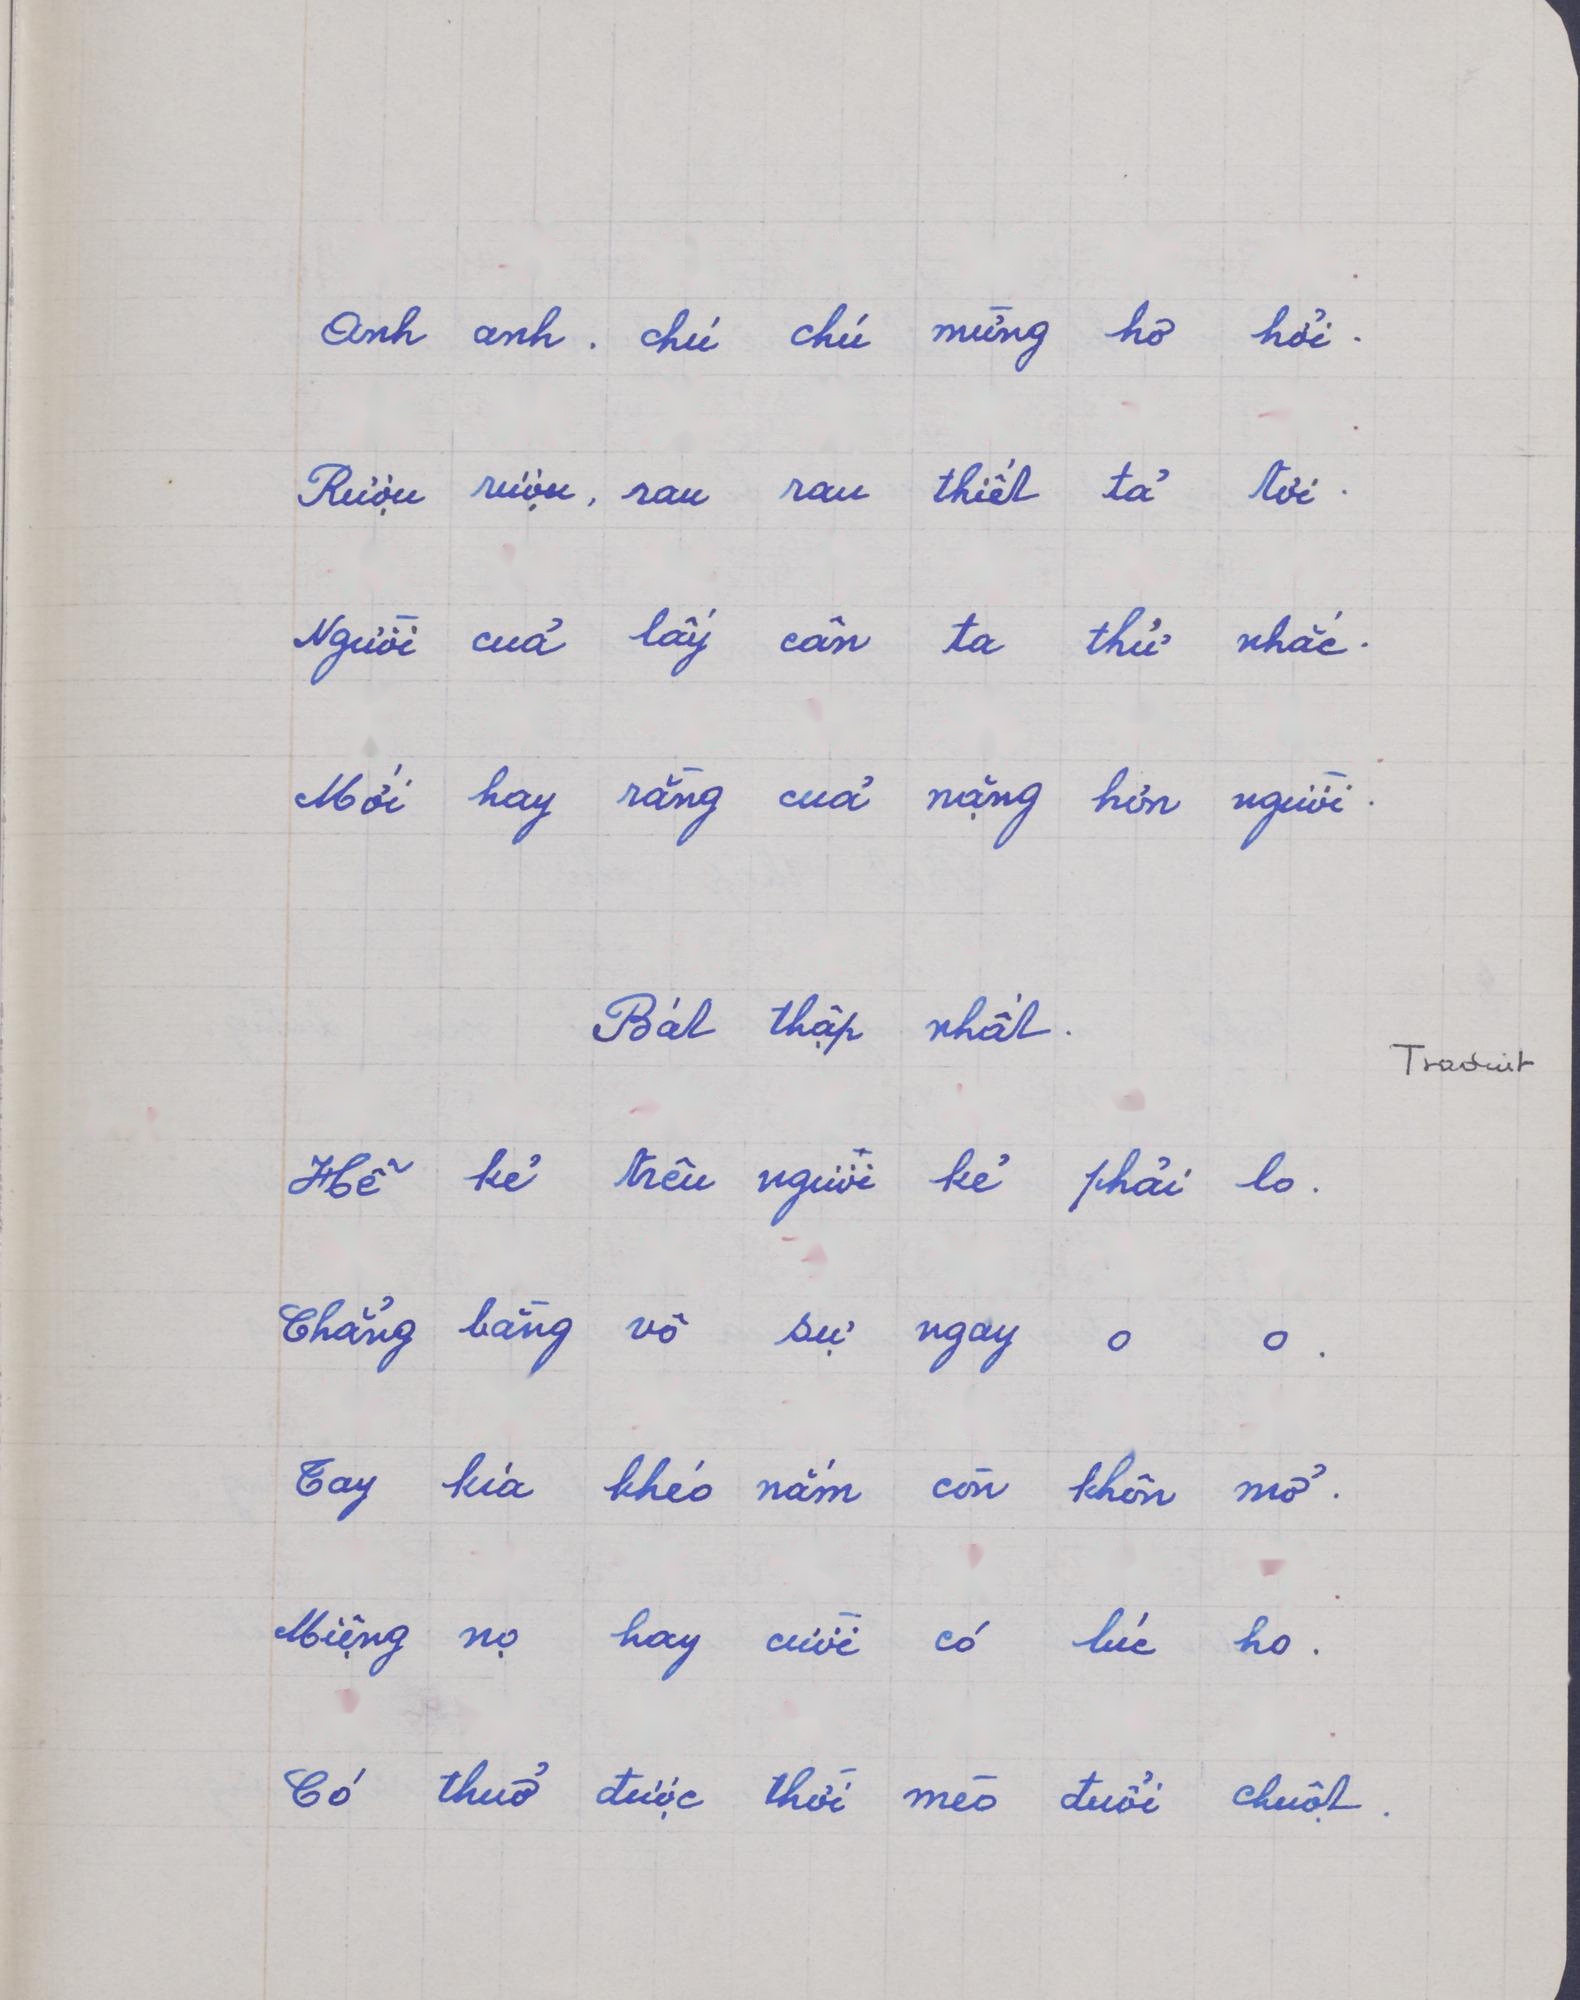 Anh anh. chú chú mừng hơ hởi.
Rượu rượu, rau rau thiết tả tơi.
Người cuả lấy cân ta thử nhắc.
Mới hay rằng cuả nặng hơn người.
Bát thập nhất.
Traduit
Hễ kẻ trêu người kẻ phải lo.
Chẳng bằng vô sự ngay o o.
Tay kia khéo nắm còn khôn mở.
Miệng nọ hay cười có lúc ho.
Có thuở được thời mèo đuổi chuột.